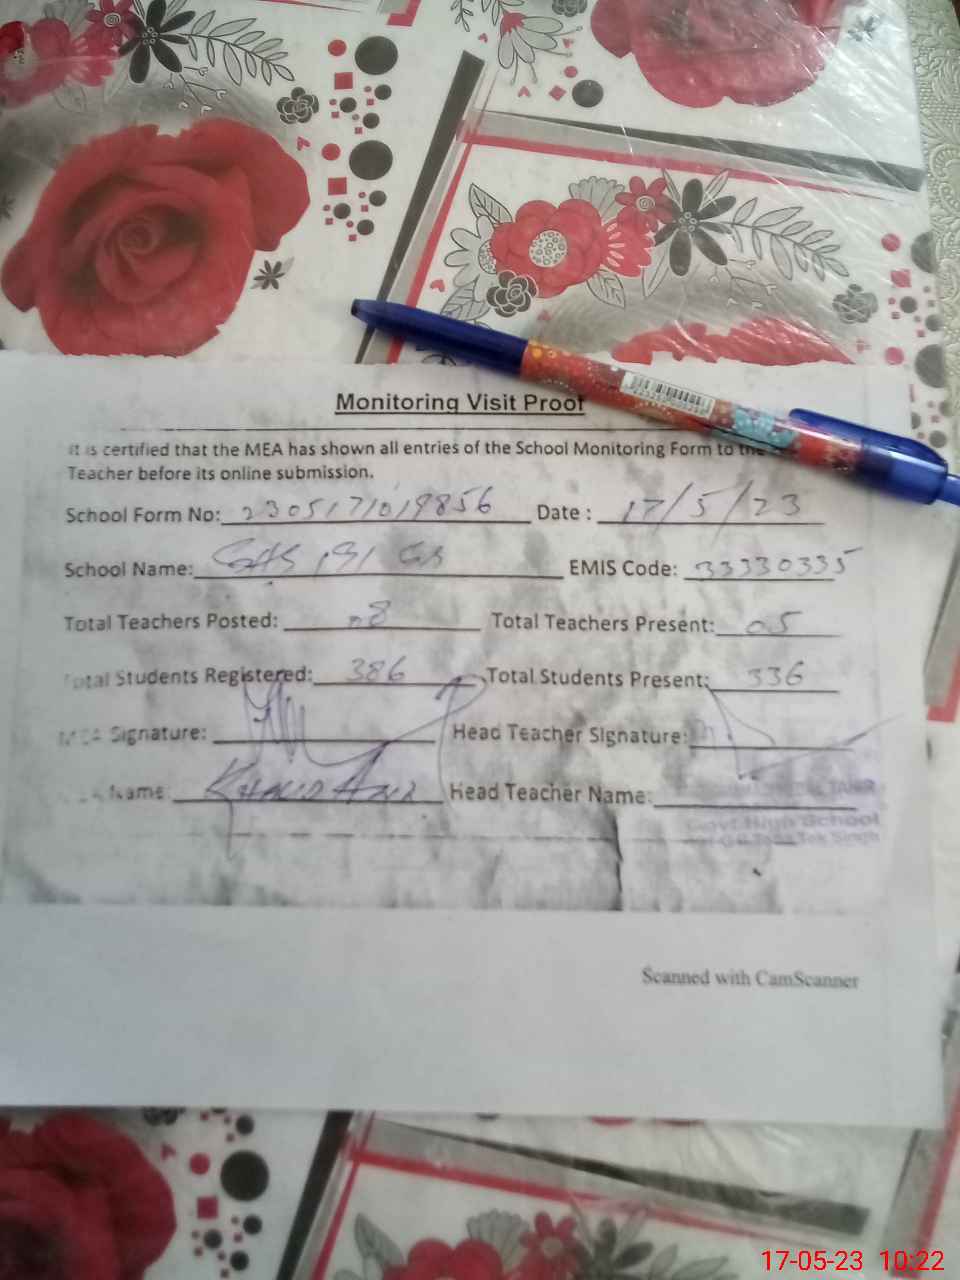 Monitoring Visit Proof
It is certified that the MEA has shown all entries of the School Monitoring Form to the
Teacher before its online submission.
School Form No: 2305171019856 Date : 17/5/23
School Name: EMIS Code: 33330335
Total Teachers Posted: 08 Total Teachers Present: 05
Total Students Registered: 386 Total Students Present: 336
MEA Signature: Head Teacher Signature:
Name: Khalid Head Teacher Name:
TAHIR
Govt High School
Toba Tek Singh
Scanned with CamScanner
17-05-23 10:22